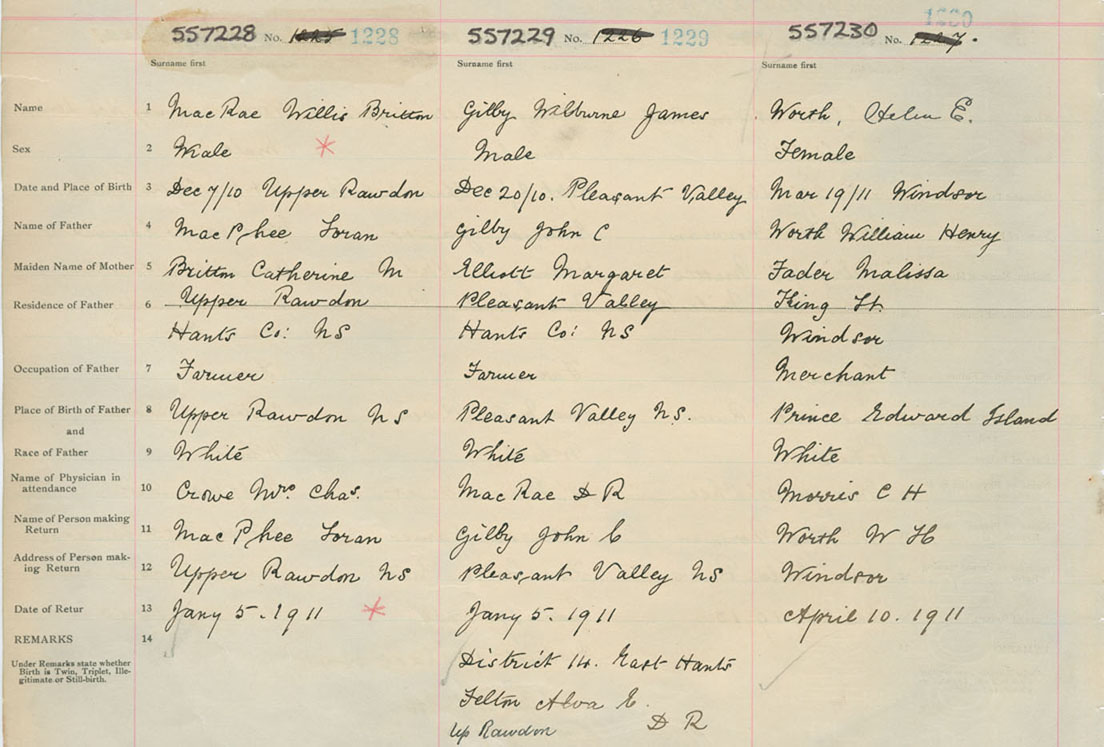 557228 No. 1228
557229 No. 1226 1229
557230 No. 1227. 1230
Surname first Surname first Surname first
Name 1 MacRae Willis Britton Gilby Wilburne James Worth, Helen E.
Sex 2 Male Male Female
Date and Place of Birth 3 Dec 7/10 Upper Rawdon Dec 20/10. Pleasant Valley Mar 19/11 Windsor
Name of Father 4 MacPhee Loran Gilby John C Worth William Henry
Maiden Name of Mother 5 Britton Catherine M Elliott Margaret Fader Malissa
Residence of Father 6 Upper Rawdon Pleasant Valley King St.
Hants Co: NS Hants Co: NS Windsor
Occupation of Father 7 Farmer Farmer Merchant
Place of Birth of Father 8 Upper Rawdon NS Pleasant Valley NS. Prince Edward Island
and
Race of Father 9 White White White
Name of Physician in
attendance 10 Crowe Mrs Chas. MacRae D R Morris C H
Name of Person making
Return 11 MacPhee Loran Gilby John C Worth W H
Address of Person mak-
ing Return 12 Upper Rawdon NS Pleasant Valley NS Windsor
Date of Retur 13 Jany 5. 1911 Jany 5. 1911 April 10. 1911
REMARKS 14
Under Remarks state whether
Birth is Twin, Triplet, Ille-
gitimate or Still-birth.
District 14. East Hants
Felton Alva E.
Up Rawdon D R